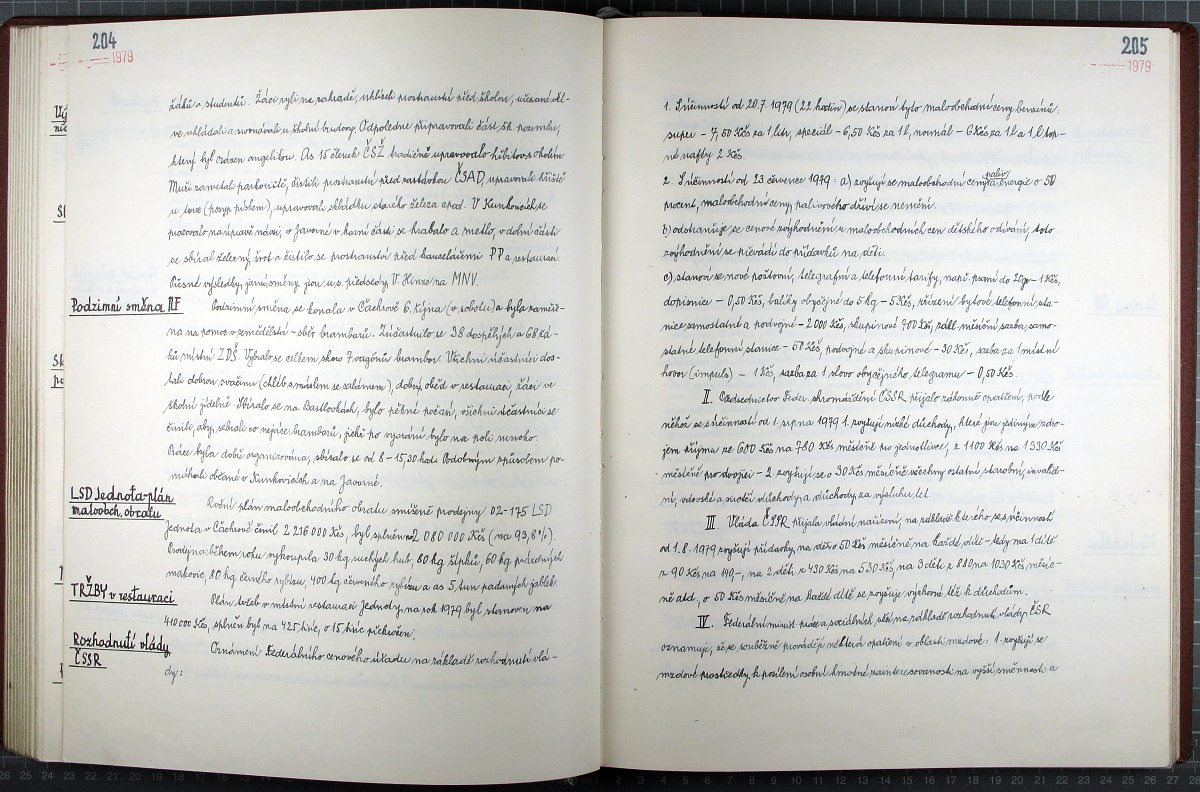 204
1979
žáků a studentů. Žáci ryli na zahradě, uklízeli prostranství před školou, učesané uhlí
ve ukládali a srovnávali u školní budovy. Odpoledne připravovali část šk. pozemku,
který byl orán. As 15 členek ČSŽ tradičně upravovalo hřbitov s okolím
Muži zametali parkoviště, čistili prostranství před zastávkou ČSAD, upravovali hřiště
u (posyp pískem), upravovali skládku starého železa apod. V Kunkovicích se
pracovalo na úpravě návsi, v Javorné v horní části se hrabalo a metlo, v dolní části
se sbíral železný šrot a čistilo se prostranství před kancelářemi PP a restaurací
Přesné výsledky jarní směny jsou u s. předsedy V. Hinze na MNV.
Podzimní směna NF
Podzimní směna se konala v Čachrově 6. října (v sobotu) a byla zaměře-
na na pomoc v zemědělství – sběr bramborů. Zúčastnilo se 38 dospělých a 68 žá-
ků místní ZDŠ. Vybralo se celkem skoro 7 vagónů brambor. Všichni účastníci dos-
tali dobrou svačinu (chléb s máslem se salámem), dobrý oběd v restauraci, žáci ve
školní jídelně. Sbíralo se na Bastlovkách, bylo pěkné počasí, všichni účastníci se
činili, aby sebrali co nejvíce bramborů, jichž po vyorání bylo na poli mnoho.
Práce byla dobře organizována, sbíralo se od 8 – 15,30 hod. Podobným způsobem po-
máhali občané v Kunkovicích a na Javorné.
LSD Jednota-plán
maloobch. obratu
Roční plán maloobchodního obratu smíšené prodejny 02-175 LSD
Jednota v Čachrově činil 2 216 000 Kčs, byl splněn 2 080 000 Kčs (na 93,8%).
Prodejna během roku vykoupila 30 kg suchých hub, 60 kg šípků, 60 kg prázdných
makovic, 80 kg černého rybízu, 400 kg červeného rybízu a as 5 tun padaných jablek.
TRŽBY v restauraci
Plán tržeb v místní restauraci Jednoty na rok 1979 byl stanoven na
410 000 Kčs, splněn byl na 425 tisíc, o 15 tisíc překročen.
Rozhodnutí vlády
ČSSR
Oznámení Federálního cenového úřadu na základě rozhodnutí vlá-
dy:
205
1979
1. S účinností od 20.7. 1979 (22 hodin) se stanoví tyto maloobchodní ceny benzínů:
super – 7,50 Kčs za 1 litr, speciál – 6,50 Kčs za 1 l, normál – 6 Kčs za 1 l a 1 l top-
né nafty 2 Kčs.
2. S účinností od 23 července 1979: a) zvyšují se maloobchodní ceny paliv a energie o 50
procent, maloobchodní ceny palivového dříví se nemění.
b) odstraňuje se cenové zvýhodnění z maloobchodních cen dětského odívání, toto
zvýhodnění se převádí do přídavků na děti.
c) stanoví se nové poštovní, telegrafní a telefonní tarify, např. psaní do 20g – 1 Kčs,
dopisnice – 0,50 Kčs, balíky obyčejné do 5 kg – 5 Kčs, zřízení bytové telefonní sta-
nice samostatné a podvojné – 2 000 Kčs, skupinové 700 Kčs, zákl. měsíční sazba samo-
statné telefonní stanice – 50 Kčs, podvojné a skupinové – 30 Kčs, sazba za 1 místní
hovor (impuls) – 1 Kčs, sazba za 1 slovo obyčejného telegramu – 0,50 Kčs.
II. Předsednictvo Feder. shromáždění ČSSR přijalo zákonné opatření, podle
něhož se s účinností od 1. srpna 1979 1. zvyšují nízké důchody, které jsou jediným zdro-
jem příjmu ze 600 Kčs na 780 Kčs měsíčně pro jednotlivce, z 1100 Kčs na 1330 Kčs
měsíčně pro dvojici – 2. zvyšují se o 30 Kčs měsíčně všechny ostatní starobní, invalid-
ní, vdovské a sirotčí důchody a důchody za výsluhu let.
III. Vláda ČSSR přijala vládní nařízení, na základě kterého se s účinností
od 1.8.1979 zvyšují přídavky na děti o 50 Kčs měsíčně na každé dítě – tedy na 1 dítě
z 90 Kčs na 140,-, na 2 děti z 430 Kčs na 530 Kčs, na 3 děti z 880 na 1030 Kčs měsíč-
ně atd., o 50 Kčs měsíčně na každé dítě se zvyšuje výchovné též k důchodům.
IV. Federální minist. práce a sociálních věcí na základě rozhodnutí vlády ČSR
oznamuje, že se souběžně provádějí některá opatření v oblasti mzdové: 1. zvyšují se
mzdové prostředky k posílení osobní hmotné zainteresovanosti na vyšší směnnosti a